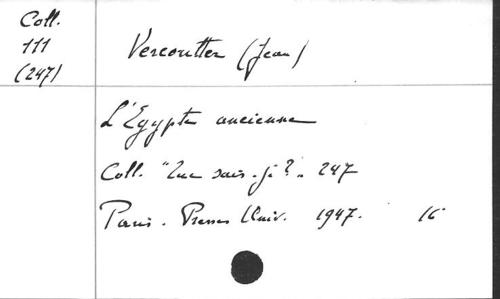 Coll.
111
(247)
Vercoutter (Jean)
L'Egypte ancienne
Coll. "Que sais-je?" 247
Paris. Presses Univ. 1947. 16